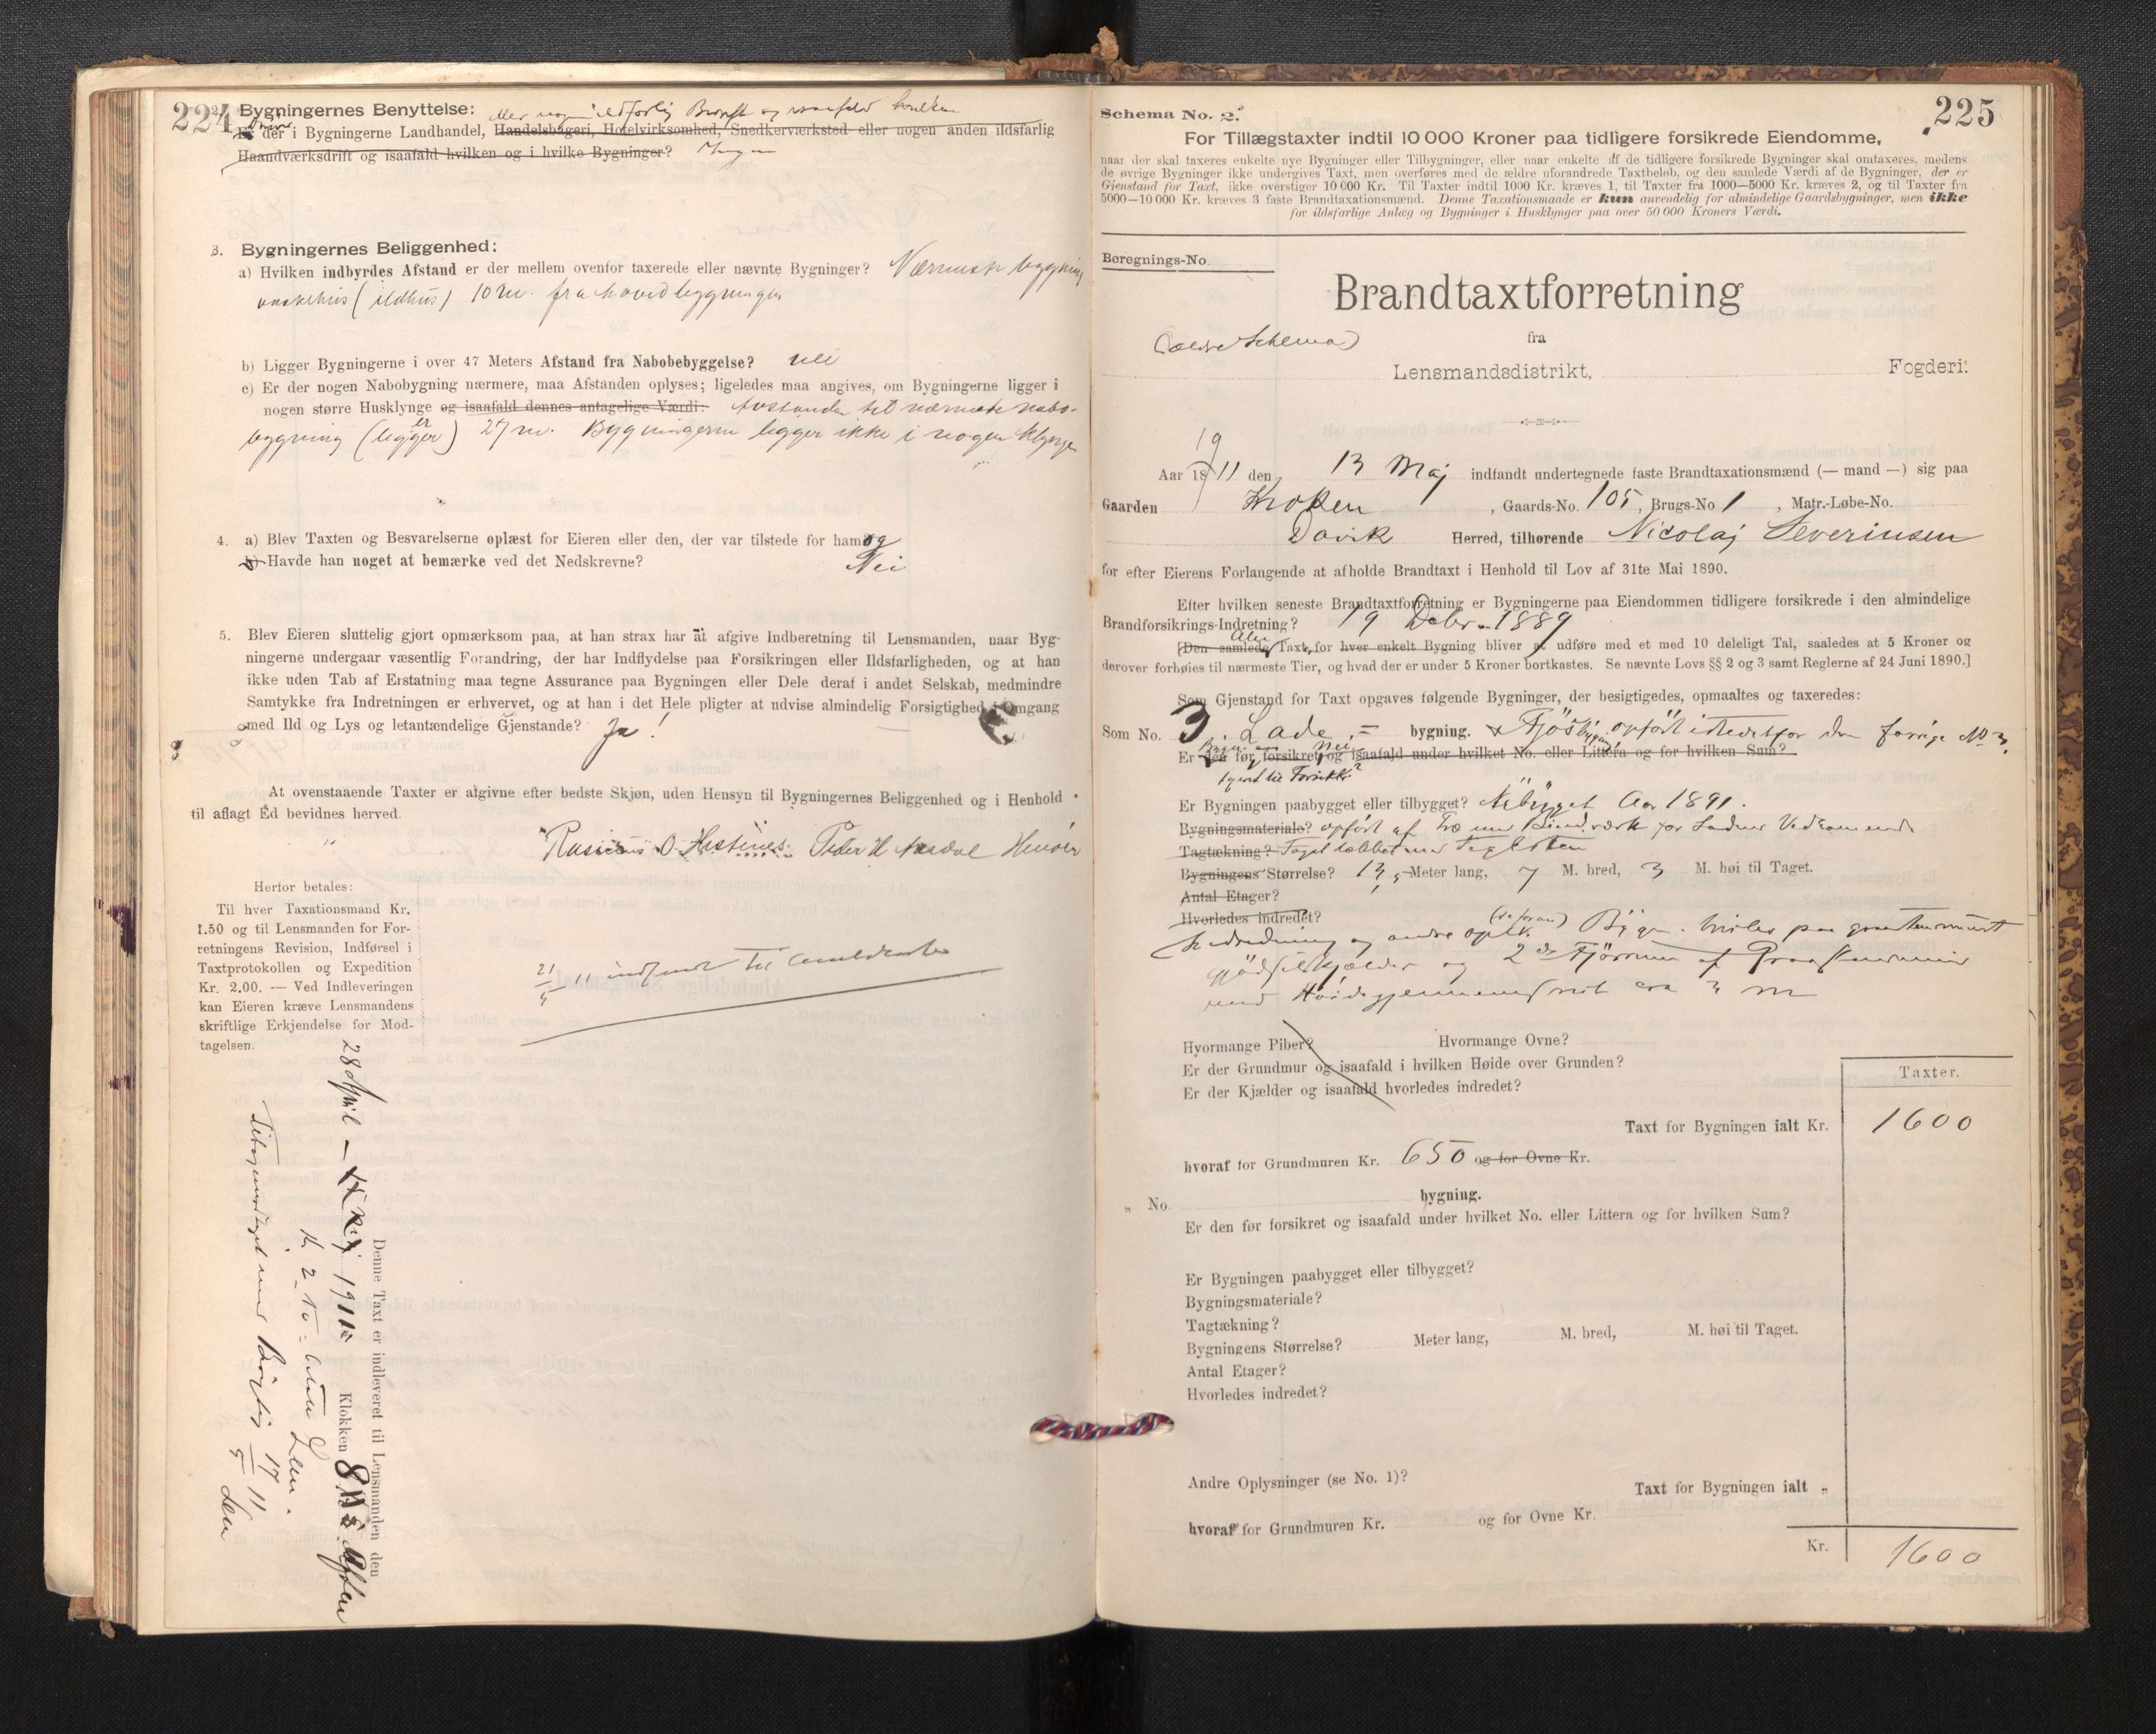 224
Bygningernes Benyttelse: eller nogen ildsfarlig Bedrift og isaafald hvilken
Er der i Bygningerne Landhandel, Handelsbageri, Hotelvirksomhed, Snedkerværksted eller nogen anden ildsfarlig
Haandværksdrift og isaafald hvilken og i hvilke Bygninger? Ingen
3. Bygningernes Beliggenhed:
a) Hvilken indbyrdes Afstand er der mellem ovenfor taxerede eller nævnte Bygninger? Nærmeste bygning
vaskehus (ildhus) 10 m. fra hovedbygningen
b) Ligger Bygningerne i over 47 Meters Afstand fra Nabobebyggelse? nei
c) Er der nogen Nabobygning nærmere, maa Afstanden oplyses; ligeledes maa angives, om Bygningerne ligger i
nogen større Husklynge og isaafald dennes antagelige Værdi: Avstanden til nærmeste nabo-
bygning (ligger) er 27 m. Bygningerne ligger ikke i nogen klynge
4. a) Blev Taxten og Besvarelserne oplæst for Eieren eller den, der var tilstede for ham og
b) Havde han noget at bemærke ved det Nedskrevne? Nei
5. Blev Eieren sluttelig gjort opmærksom paa, at han strax har at afgive Indberetning til Lensmanden, naar Byg-
ningerne undergaar væsentlig Forandring, der har Indflydelse paa Forsikringen eller Ildsfarligheden, og at han
ikke uden Tab af Erstatning maa tegne Assurance paa Bygningen eller Dele deraf i andet Selskab, medmindre
Samtykke fra Indretningen er erhvervet, og at han i det Hele pligter at udvise almindelig Forsigtighed i Omgang
med Ild og Lys og letantændelige Gjenstande? Ja!
At ovenstaaende Taxter er afgivne efter bedste Skjøn, uden Hensyn til Bygningernes Beliggenhed og i Henhold
til aflagt Ed bevidnes herved.
Rasmus O. Hestenes. Peder H Aasdal Henden
Herfor betales:
Til hver Taxationsmand Kr.
1.50 og til Lensmanden for For-
retningens Revision, Indførsel i
Taxtprotokollen og Expedition
Kr. 2.00. — Ved Indleveringen
kan Eieren kræve Lensmandens
skriftlige Erkjendelse for Mod-
tagelsen.
21/5 11 indsendt til
Denne Taxt er indleveret til Lensmanden den
28 April 1911 Klokken 8 Aften
Len
17/5 11 Len
Schema No. 2.
225
For Tillægstaxter indtil 10 000 Kroner paa tidligere forsikrede Eiendomme,
naar der skal taxeres enkelte nye Bygninger eller Tilbygninger, eller naar enkelte af de tidligere forsikrede Bygninger skal omtaxeres, medens
de øvrige Bygninger ikke undergives Taxt, men overføres med de ældre uforandrede Taxtbeløb, og den samlede Værdi af de Bygninger, der er
Gjenstand for Taxt, ikke overstiger 10 000 Kr. Til Taxter indtil 1000 Kr. kræves 1, til Taxter fra 1000—5000 Kr. kræves 2, og til Taxter fra
5000—10 000 Kr. kræves 3 faste Brandtaxationsmænd. Denne Taxationsmaade er kun anvendelig for almindelige Gaardsbygninger, men ikke
for ildsfarlige Anlæg og Bygninger i Husklynger paa over 50 000 Kroners Værdi.
Beregnings-No.
Brandtaxtforretning
(ældre Schema)
fra
Lensmandsdistrikt, Fogderi.
Aar 1911 den 13 Maj indfandt undertegnede faste Brandtaxationsmænd (— mand —) sig paa
Gaarden Kroken, Gaards-No. 105, Brugs-No 1, Matr.-Løbe-No.
Davik Herred, tilhørende Nicolaj Severinsen
for efter Eierens Forlangende at afholde Brandtaxt i Henhold til Lov af 31te Mai 1890.
Efter hvilken seneste Brandtaxtforretning er Bygningerne paa Eiendommen tidligere forsikrede i den almindelige
Brandforsikrings-Indretning? 19 Debr 1889
[Den samlede Taxt for hver enkelt Bygning bliver at udføre med et med 10 deleligt Tal, saaledes at 5 Kroner og
derover forhøies til nærmeste Tier, og hvad der er under 5 Kroner bortkastes. Se nævnte Lovs §§ 2 og 3 samt Reglerne af 24 Juni 1890.]
Som Gjenstand for Taxt opgaves følgende Bygninger, der besigtigedes, opmaaltes og taxeredes:
Som No. 3. Lade = bygning. & Fjøsbygn. opført istedetfor den forrige No 3.
Er den før forsikret og isaafald under hvilket No. eller Littera og for hvilken Sum?
Er Bygningen paabygget eller tilbygget? Nybygget Aar 1891.
Bygningsmateriale? opført af Træ med Bindværk for Ladens Vedkommende
Tagtækning? Taget tækket med Teglsten
Bygningens Størrelse? 13,5 Meter lang, 7 M. bred, 3 M. høi til Taget.
Antal Etager?
Hvorledes indredet?
Indredning og andre oplysn. (deforan) Bygn. hviler paa graastensmur
Gjødselkjælder og 2de Fjøsrum af Graastensmur
med Høidegjennemsnit ca 3 m
Hvormange Piber? Hvormange Ovne?
Er der Grundmur og isaafald i hvilken Høide over Grunden?
Er der Kjælder og isaafald hvorledes indredet?
Taxter.
Taxt for Bygningen ialt Kr. 1600
hvoraf for Grundmuren Kr. 650 og for Ovne Kr.
„ No. bygning.
Er den før forsikret og isaafald under hvilket No. eller Littera og for hvilken Sum?
Er Bygningen paabygget eller tilbygget?
Bygningsmateriale?
Tagtækning?
Bygningens Størrelse? Meter lang, M. bred, M. høi til Taget.
Antal Etager?
Hvorledes indredet?
Andre Oplysninger (se No. 1)? Taxt for Bygningen ialt „
hvoraf for Grundmuren Kr. og for Ovne Kr.
Kr. 1600